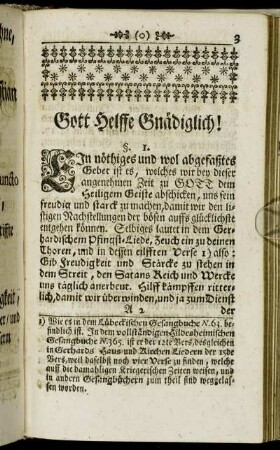 (o) 3
Gott Helffe Gnädiglich!
§. 1.
EIn nöthiges und wol abgefaßtes
Gebet ist es, welches wir bey dieser
angenehmen Zeit zu GOTT dem
Heiligem Geiste abschicken, uns fein
freudig und starck zu machen, damit wir den li-
stigen Nachstellungen der bösen auffs glücklichste
entgehen können. Selbiges lautet in dem Ger-
hardischem Pfingst-Liede, Zeuch ein zu deinen
Thoren, und in dessen eilfften Verse 1) also:
Gib Freudigkeit und Stärcke zu stehen in
dem Streit, den Satans Reich und Wercke
uns täglich anerbeut. Hilff kämpffen ritter-
lich, damit wir überwinden, und ja zum Dienst
A 2 der
1) Wie es in dem Lübeckischen Gesangbuche N. 63. be-
findlich ist. In dem vollständigen Hildesheimischen
Gesangbuche N. 365. ist er der 12te Vers, desgleichen
in Gerhards Haus- und Kirchen Liedern der 15de
Vers, weil daselbst noch vier Verse zu finden, welche
auff die damahligen Kriegerischen Zeiten weisen, und
in andern Gesangbüchern zum theil sind weggelas-
sen worden.